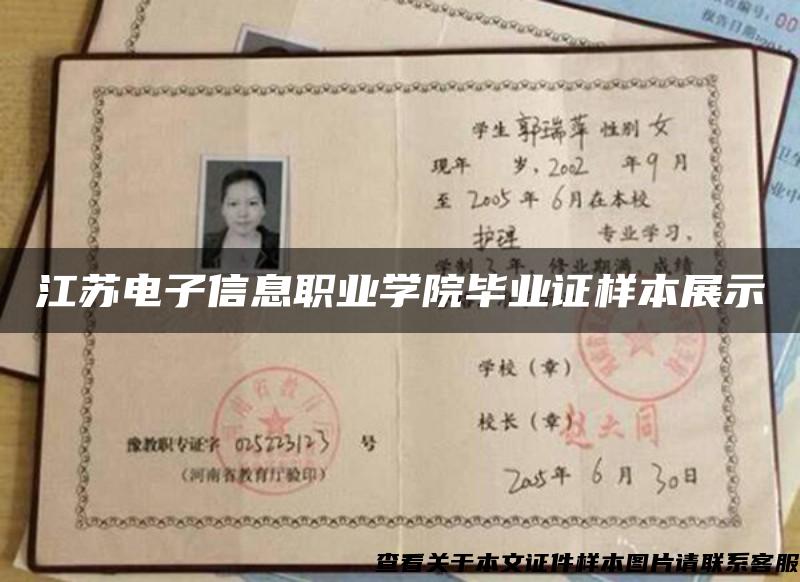 学生 郭瑞萍 性别 女
现年 岁，2002 年 9 月
至 2005 年 6 月在本校
护理 专业学习，
学制 3 年 修业期满，成绩
江苏电子信息职业学院毕业证样本展示
学校（章）
校长（章）赵大同
豫教职专证字 025223123 号
（河南省教育厅验印）
2005 年 6 月 30 日
查看关于本文证件样本图片请联系客服